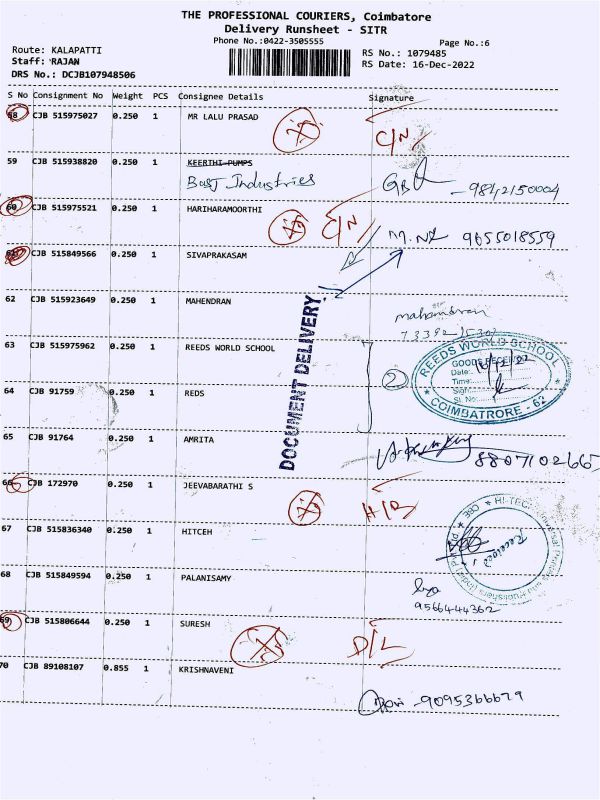 THE PROFESSIONAL COURIERS, Coimbatore
Delivery Runsheet - SITR
Phone No.:0422-3505555
Page No.:6
Route: KALAPATTI
Staff: RAJAN
DRS No.: DCJB107948506
RS No.: 1079485
RS Date: 16-Dec-2022
S No Consignment No Weight PCS Consignee Details Signature
58 CJB 515975027 0.250 1 MR LALU PRASAD
C/N
59 CJB 515938820 0.250 1 KEERTHI PUMPS
Industries
9842150004
60 CJB 515975521 0.250 1 HARIHARAMOORTHI
C/N
9655018559
CJB 515849566 0.250 1 SIVAPRAKASAM
62 CJB 515923649 0.250 1 MAHENDRAN
mahendran
DOCUMENT DELIVERY
63 CJB 515975962 0.250 1 REEDS WORLD SCHOOL
2
REEDS WORLD SCHOOL
GOODS RECEIVED
Date:
Time:
Sign:
Sl. No:
COIMBATRORE - 62
64 CJB 91759 0.250 1 REDS
65 CJB 91764 0.250 1 AMRITA
8807102665
66 CJB 172970 0.250 1 JEEVABARATHI S
67 CJB 515836340 0.250 1 HITCEH
Received
68 CJB 515849594 0.250 1 PALANISAMY
9566444362
69 CJB 515806644 0.250 1 SURESH
D/L
70 CJB 89108107 0.855 1 KRISHNAVENI